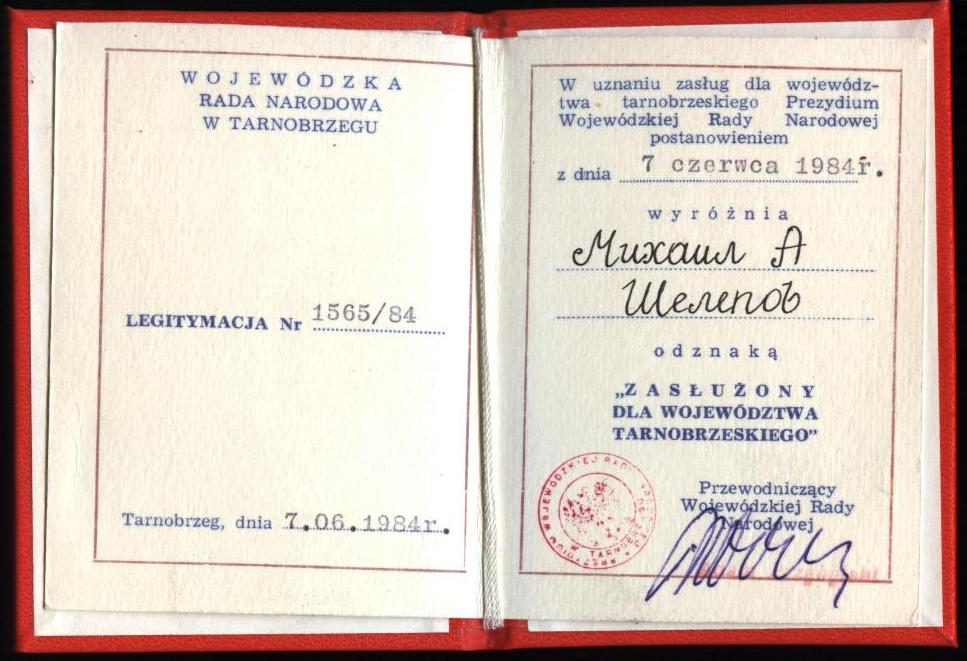 WOJEWÓDZKA
RADA NARODOWA
W TARNOBRZEGU
LEGITYMACJA Nr 1565/84
Tarnobrzeg, dnia 7.06.1984r.
W uznaniu zasług dla wojewódz-
twa tarnobrzeskiego Prezydium
Wojewódzkiej Rady Narodowej
postanowieniem
z dnia 7 czerwca 1984r.
wyróżnia
Михаил А
Шелепов
odznaką
„ZASŁUŻONY
DLA WOJEWÓDZTWA
TARNOBRZESKIEGO”
Przewodniczący
Wojewódzkiej Rady
Narodowej